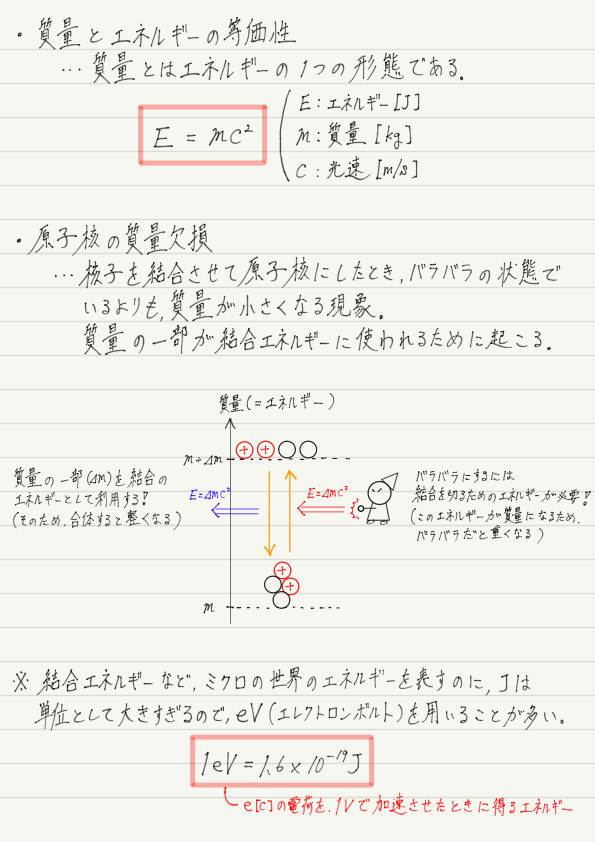 ・質量とエネルギーの等価性
…質量とはエネルギーの1つの形態である。
E = mc²
E:エネルギー[J]
m:質量[kg]
c:光速[m/s]
・原子核の質量欠損
…核子を結合させて原子核にしたとき,バラバラの状態で
いるよりも,質量が小さくなる現象。
質量の一部が結合エネルギーに使われるために起こる。
質量(=エネルギー)
m+Δm
+ +
質量の一部(Δm)を結合の
エネルギーとして利用する!
(そのため,合体すると軽くなる)
E=Δmc²
E=Δmc²
バラバラにするには
結合を切るためのエネルギーが必要!
(このエネルギーが質量になるため,
バラバラだと重くなる)
+
+
m
※ 結合エネルギーなど,ミクロの世界のエネルギーを表すのに,Jは
単位として大きすぎるので,eV(エレクトロンボルト)を用いることが多い。
1eV=1.6×10⁻¹⁹J
e[C]の電荷を,1Vで加速させたときに得るエネルギー